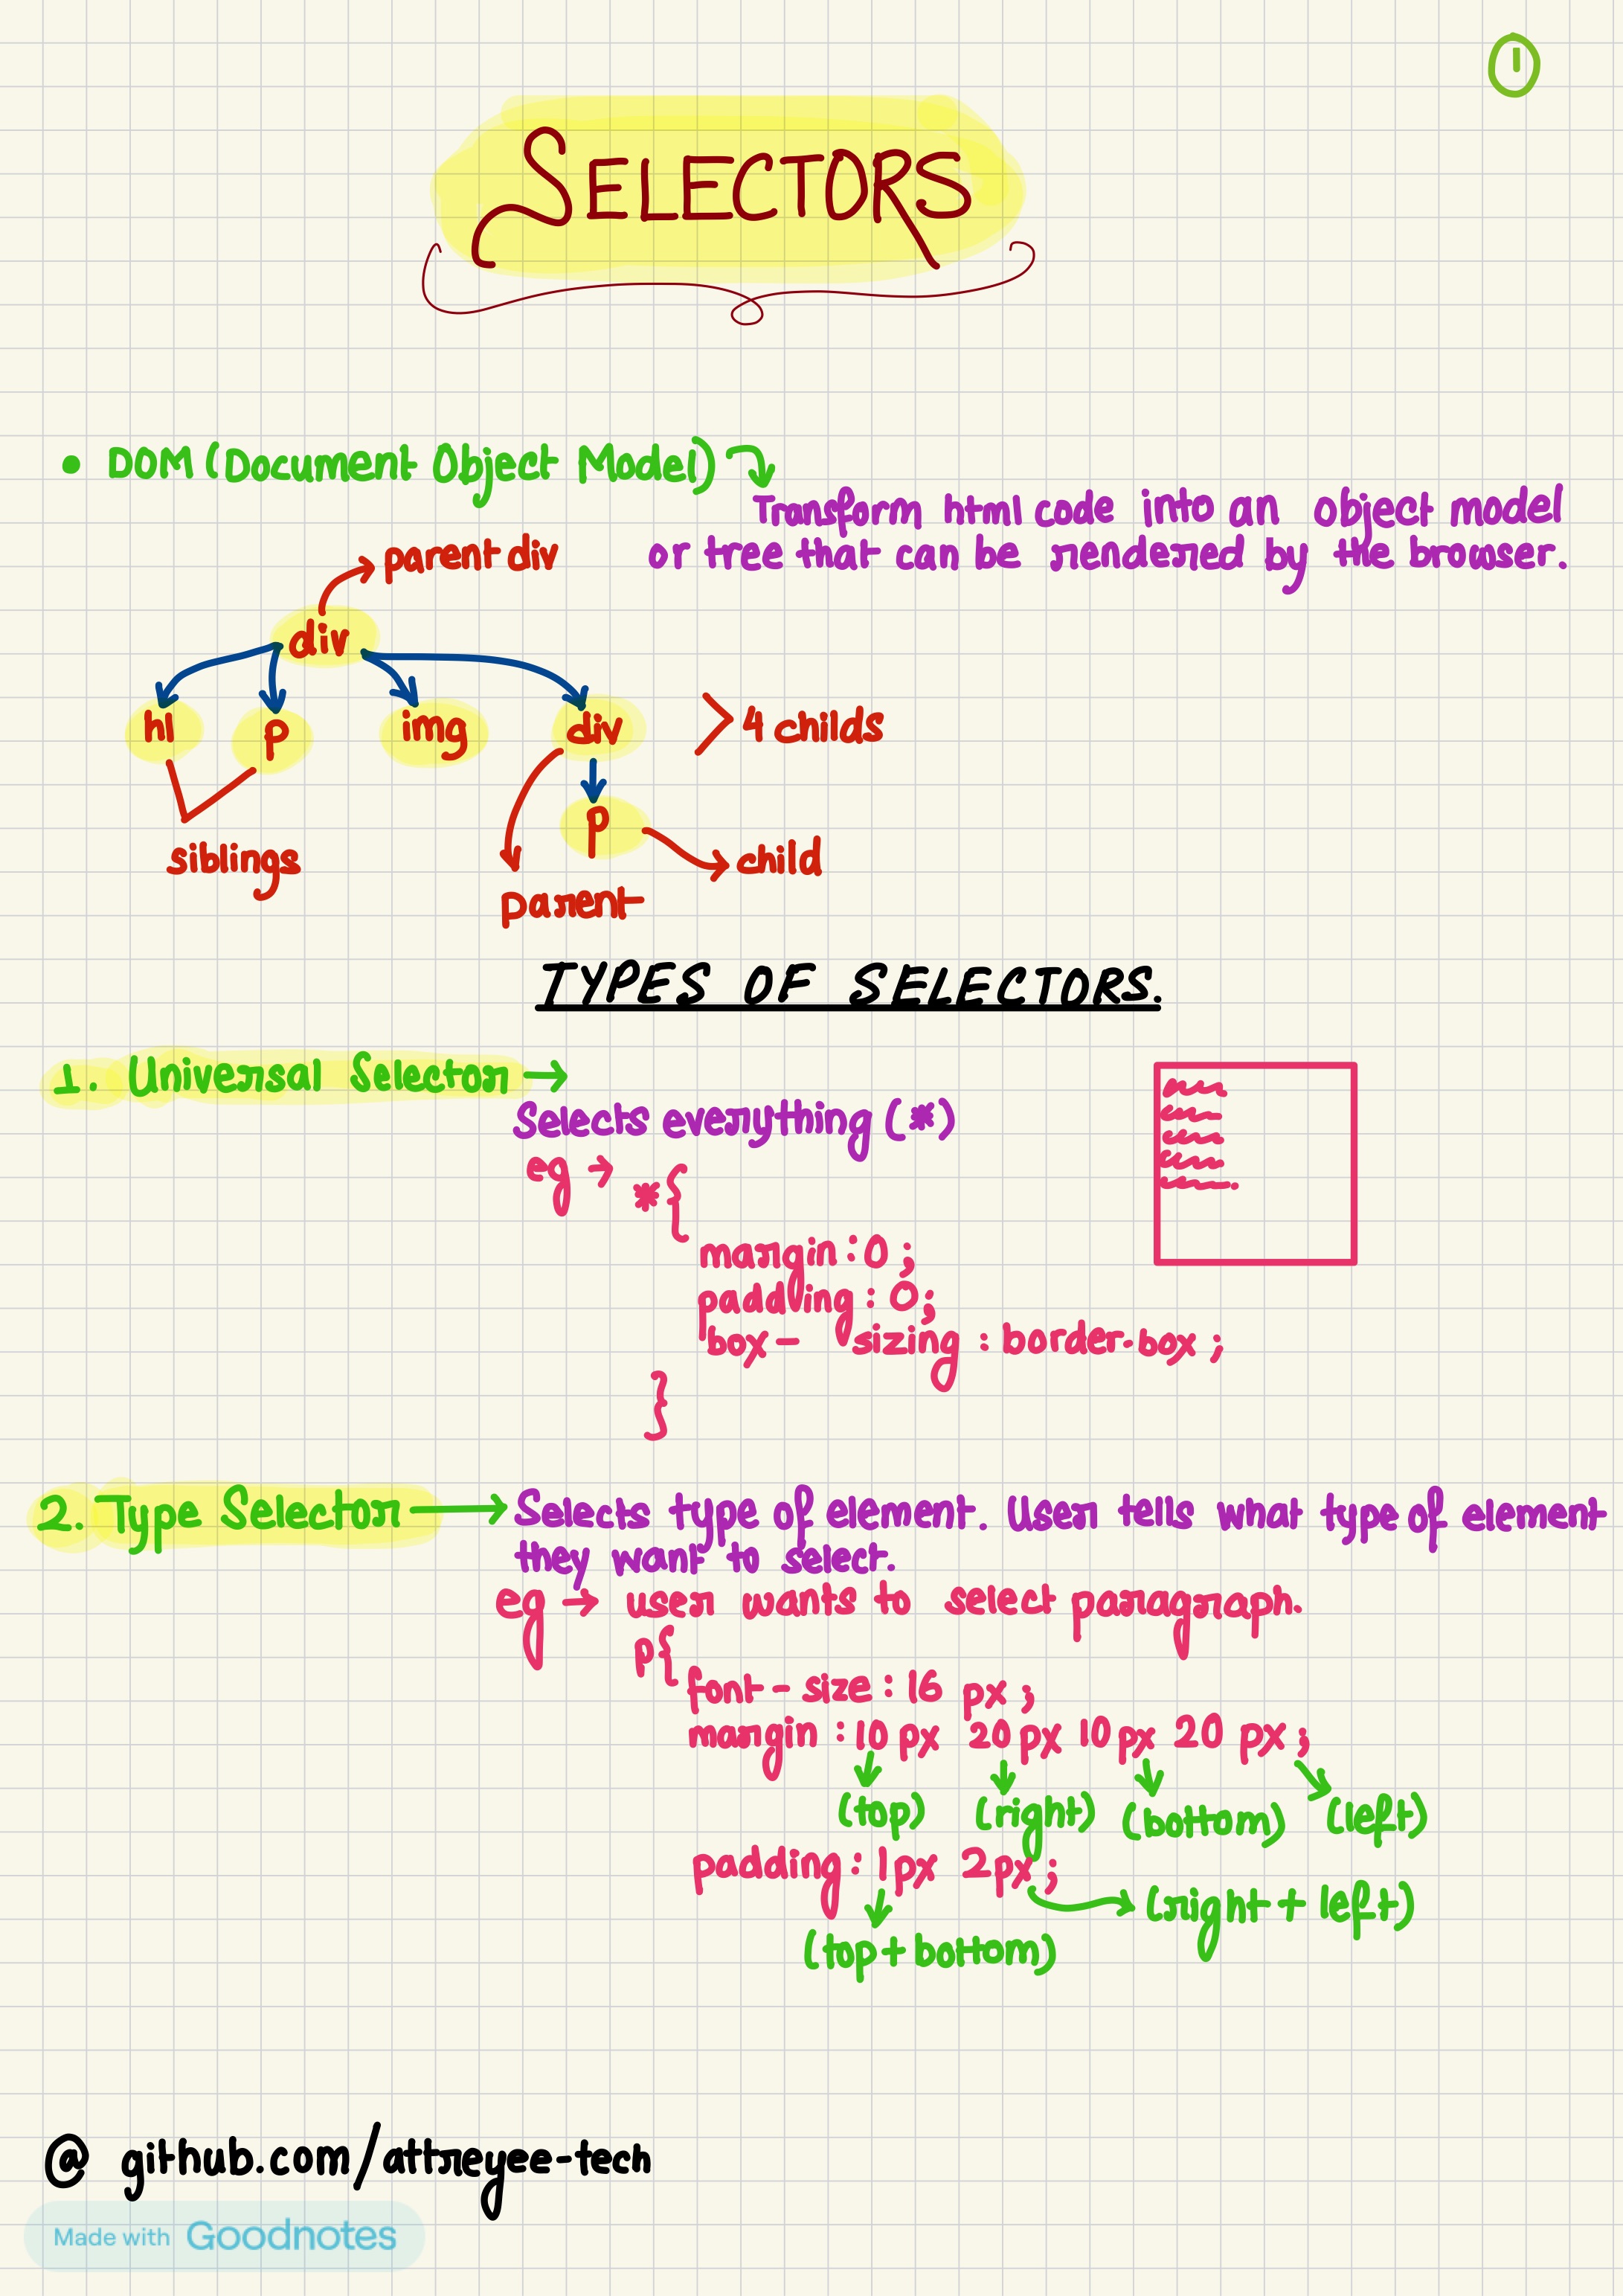 1
SELECTORS
• DOM (Document Object Model)
Transform html code into an object model
or tree that can be rendered by the browser.
parent div
div
h1 p img div
4 childs
p
siblings
child
parent
TYPES OF SELECTORS.
1. Universal Selector →
Selects everything (*)
eg →
*{
margin : 0 ;
padding : 0;
box- sizing : border-box ;
}
2. Type Selector → Selects type of element. User tells what type of element
they want to select.
eg → user wants to select paragraph.
p{
font-size : 16 px ;
margin : 10 px 20 px 10 px 20 px ;
(top) (right) (bottom) (left)
padding : 1px 2px ;
(right + left)
(top + bottom)
@ github.com/attreyee-tech
Made with Goodnotes